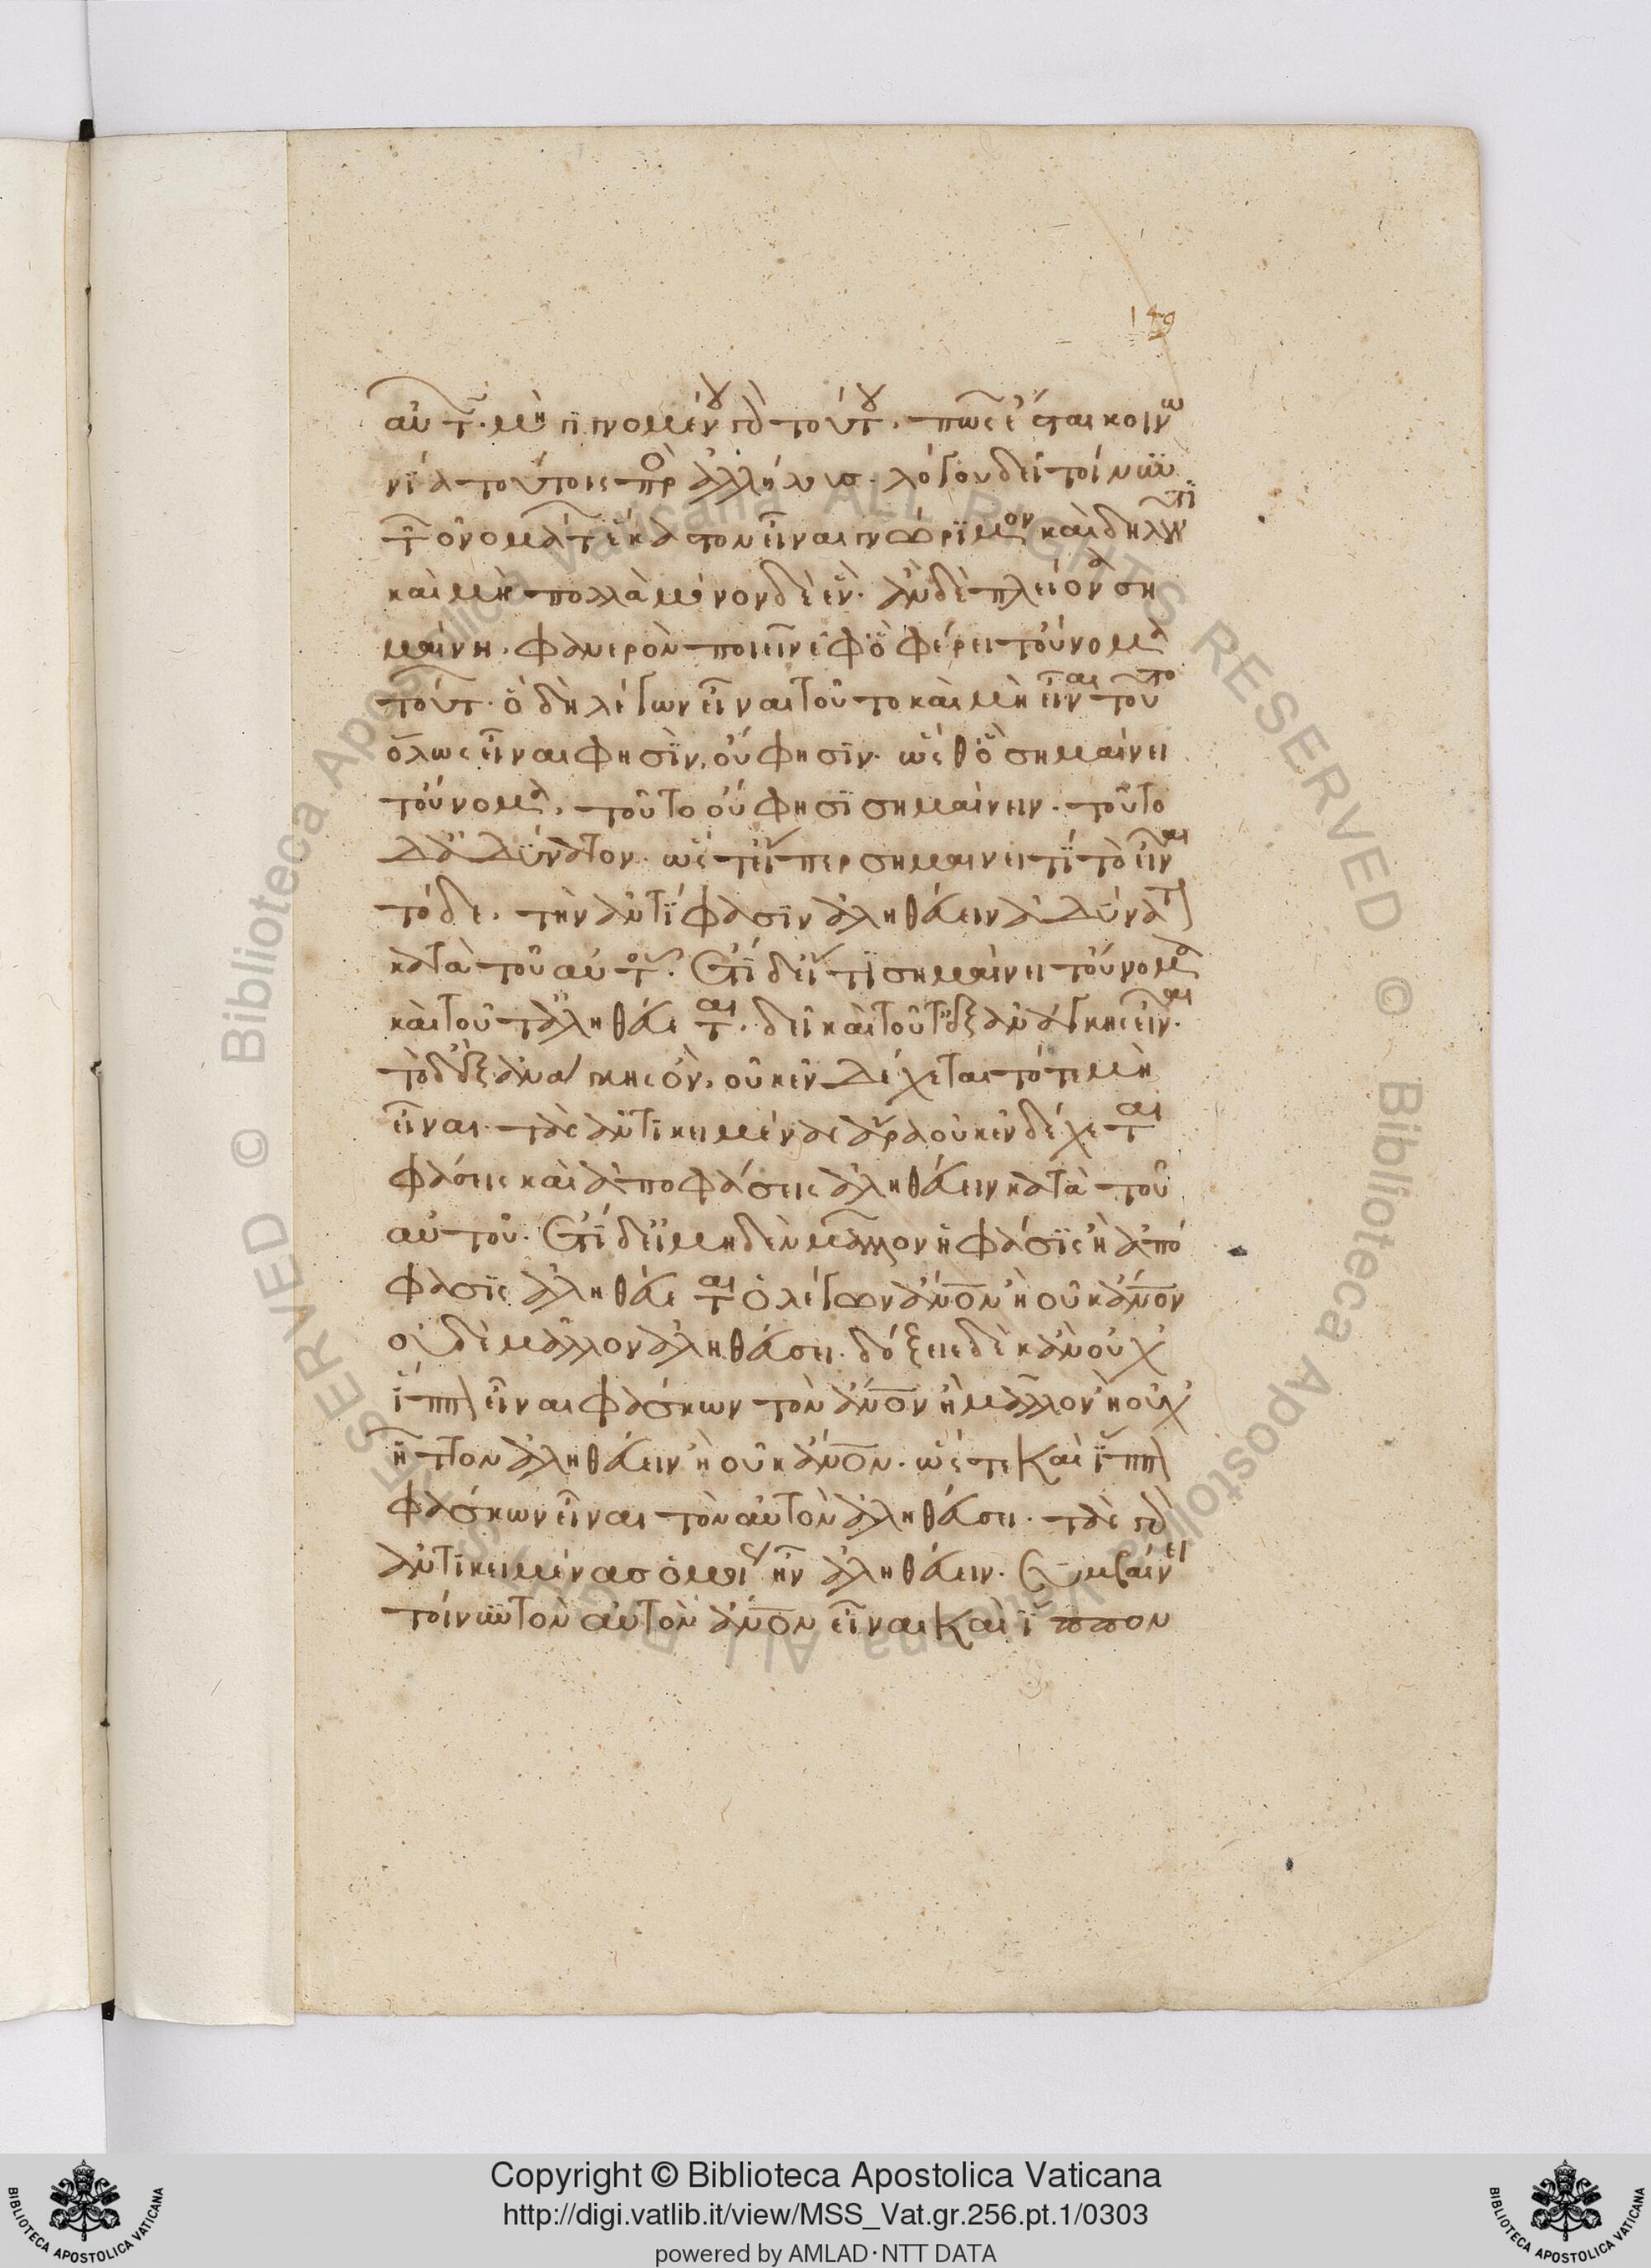 149
αὐτῶν· μὴ γινομένου γὰρ τούτου, πῶς ἔσται κοινω
νία τούτοις πρὸς ἀλλήλους. λόγον δεῖ τοίνυν
τῶν ὀνομάτων ἕκαστον εἶναι γνώριμον καὶ δηλοῦν τι
καὶ μὴ πολλὰ μόνον δὲ ἕν· ἂν δὲ πλείονα ση
μαίνη, φανερὸν ποιεῖν ἐφ' ὃ φέρει τοὔνομα
τούτων. ὁ δὴ λέγων εἶναι τοῦτο καὶ μὴ εἶναι τοῦτο
ὅλως εἶναι φησὶν, οὔ φησιν. ὥσθ' ὃ σημαίνει
τοὔνομα, τοῦτο οὔ φησι σημαίνειν. τοῦτο
δ' ἀδύνατον. ὥστ' εἴπερ σημαίνει τί τὸ εἶναι
τόδε, τὴν ἀντίφασιν ἀληθεύειν ἀδύνατον
κατὰ τοῦ αὐτοῦ. Ἔτι δ' εἴ τι σημαίνει τοὔνομα
καὶ τοῦτ' ἀληθεύεται, δεῖ καὶ τοῦτ' ἐξ ἀνάγκης εἶναι.
τὸ δ' ἐξ ἀνάγκης ὂν, οὐκ ἐνδέχεται τότε μὴ
εἶναι. τὰς ἀντικειμένας ἄρα οὐκ ἐνδέχεται
φάσεις καὶ ἀποφάσεις ἀληθεύειν κατὰ τοῦ
αὐτοῦ. Ἔτι δ' εἰ μηδὲν μᾶλλον ἡ φάσις ἢ ἡ ἀπό
φασις ἀληθεύεται ὁ λέγων ἄνον ἢ οὐκ ἄνον
οὐδὲν μᾶλλον ἀληθεύσει. δόξειε δὲ κἂν οὐχ
ἵππον εἶναι φάσκων τὸν ἄνον ἢ μᾶλλον ἢ οὐχ
ἧττον ἀληθεύειν ἢ οὐκ ἄνον. ὥστε καὶ ἵππον
φάσκων εἶναι τὸν αὐτὸν ἀληθεύσει. τὰς γὰρ
ἀντικειμένας ὁμοίως ἦν ἀληθεύειν. Συμβαίνει
τοίνυν τὸν αὐτὸν ἄνον εἶναι καὶ ἵππον
Copyright © Biblioteca Apostolica Vaticana
http://digi.vatlib.it/view/MSS_Vat.gr.256.pt.1/0303
powered by AMLAD·NTT DATA